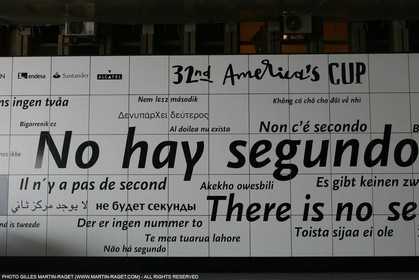 endesa Santander ALCATEL 32nd America's CUP
ns ingen tvåa Nem lesz második Không có chỗ cho đôi về nhì
Δενυπάρχει δεύτερος
Bigarrenik ez Al doilea nu exista Non c'é secondo
No hay segundo
Il n'y a pas de second Akekho owesbili Es gibt keinen zw
لا يوجد مركز ثاني не будет секунды There is no se
nd is tweede Der er ingen nummer to Toista sijaa ei ole
Te mea tuarua lahore
Não há segundo
PHOTO GILLES MARTIN-RAGET (WWW.MARTIN-RAGET.COM) - ALL RIGHTS RESERVED